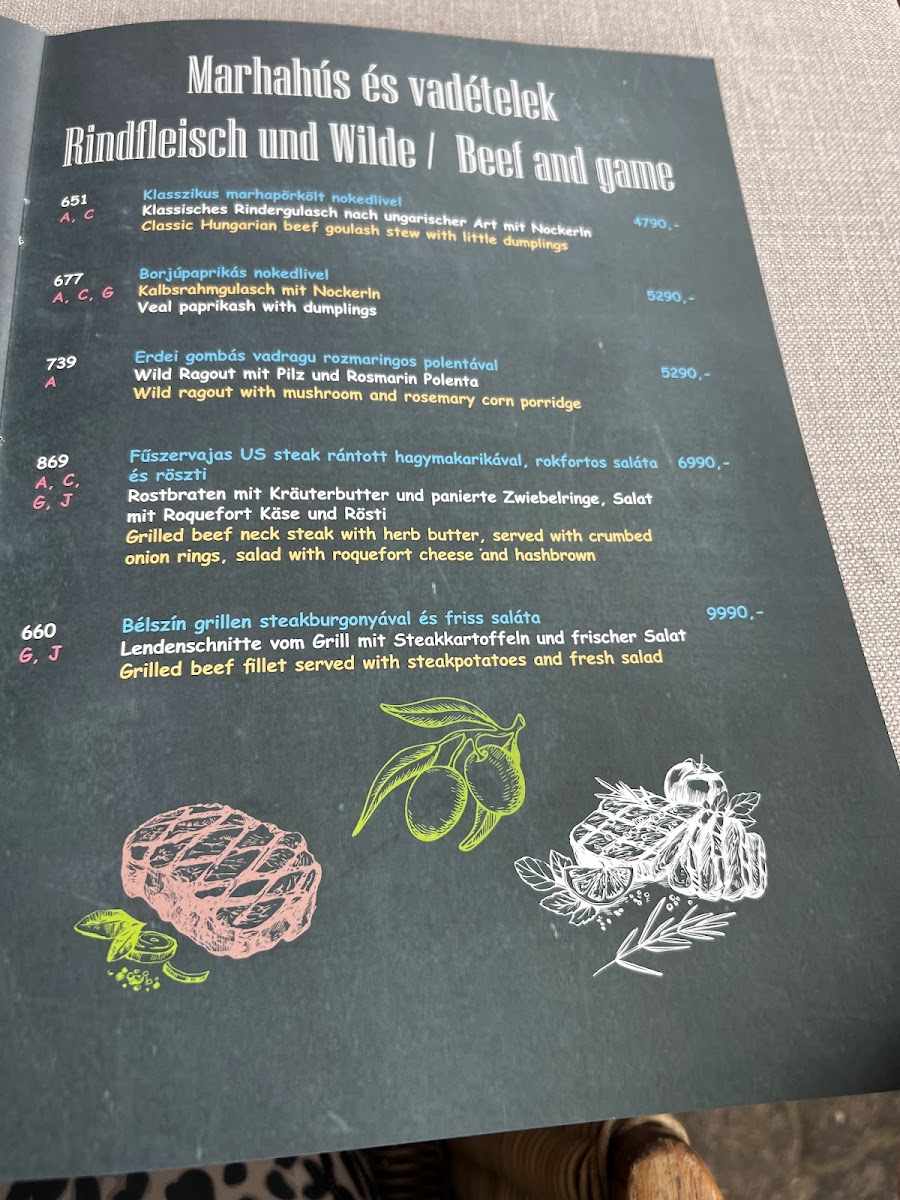 Marhahús és vadételek
Rindfleisch und Wilde / Beef and game
651 Klasszikus marhapörkölt nokedlivel
A, C Klassisches Rindergulasch nach ungarischer Art mit Nockerln 4790,-
Classic Hungarian beef goulash stew with little dumplings
677 Borjúpaprikás nokedlivel
A, C, G Kalbsrahmgulasch mit Nockerln 5290,-
Veal paprikash with dumplings
739 Erdei gombás vadragu rozmaringos polentával
A Wild Ragout mit Pilz und Rosmarin Polenta 5290,-
Wild ragout with mushroom and rosemary corn porridge
869 Fűszervajas US steak rántott hagymakarikával, rokfortos saláta 6990,-
A, C, és röszti
G, J Rostbraten mit Kräuterbutter und panierte Zwiebelringe, Salat
mit Roquefort Käse und Rösti
Grilled beef neck steak with herb butter, served with crumbed
onion rings, salad with roquefort cheese and hashbrown
660 Bélszín grillen steakburgonyával és friss saláta 9990,-
G, J Lendenschnitte vom Grill mit Steakkartoffeln und frischer Salat
Grilled beef fillet served with steakpotatoes and fresh salad